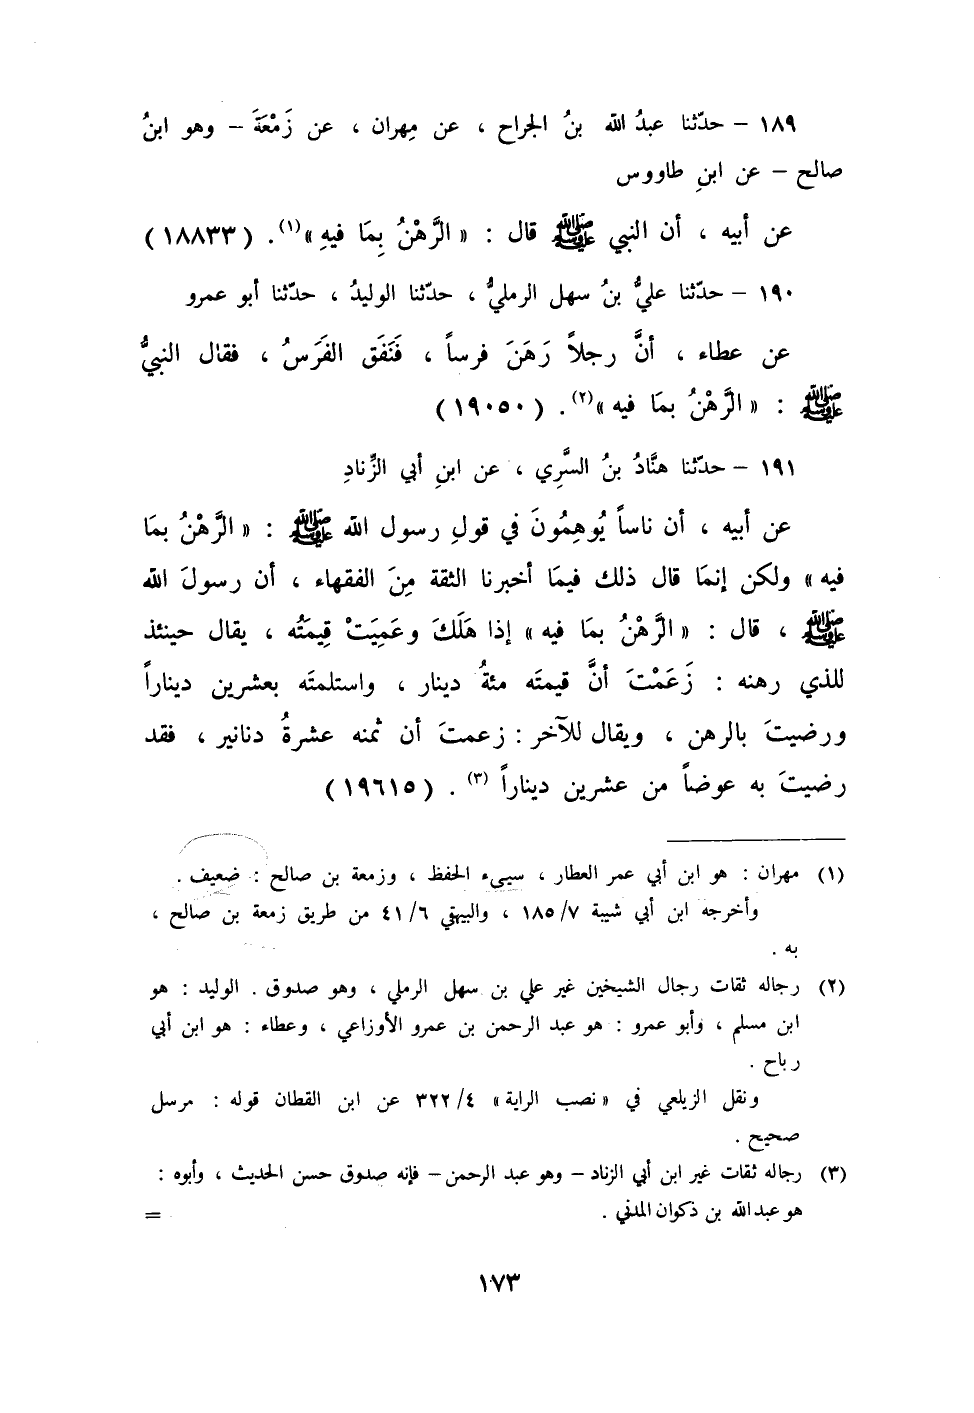 ١٨٩ – حدّثنا عبدُ الله بنُ الجراح ، عن مِهران ، عن زَمْعَةَ – وهو ابنُ
صالح – عن ابنِ طاووس
عن أبيه ، أن النبي ﷺ قال : « الرَّهْنُ بِمَا فيهِ »(١). (١٨٨٣٣)
١٩٠ – حدّثنا عليُّ بنُ سهل الرمليُّ ، حدّثنا الوليدُ ، حدّثنا أبو عمرو
عن عطاء ، أنَّ رجلاً رَهَنَ فرساً ، فَنَفَق الفَرَسُ ، فقال النبيُّ
ﷺ : « الرَّهْنُ بمَا فيه »(٢). (١٩٠٥٠)
١٩١ – حدّثنا هنَّادُ بنُ السَّرِي ، عن ابنِ أبي الزِّنادِ
عن أبيه ، أن ناساً يُوهِمُونَ في قولِ رسول الله ﷺ : « الرَّهْنُ بمَا
فيه » ولكن إنمَا قال ذلك فيمَا أخبرنا الثقة مِنَ الفقهاء ، أن رسولَ الله
ﷺ ، قال : « الرَّهْنُ بمَا فيه » إذا هَلَكَ وعَمِيَتْ قِيمَتُه ، يقال حينئذ
للذي رهنه : زَعَمْتَ أنَّ قيمتَه مئةُ دينار ، واستلمتَه بعشرين ديناراً
ورضيتَ بالرهن ، ويقال للآخر : زعمتَ أن ثمنه عشرةُ دنانير ، فقد
رضيتَ به عوضاً من عشرين ديناراً (٣) . (١٩٦١٥)
(١) مهران : هو ابن أبي عمر العطار ، سيىء الحفظ ، وزمعة بن صالح : ضعيف .
وأخرجه ابن أبي شيبة ٧/ ١٨٥ ، والبيهقي ٦/ ٤١ من طريق زمعة بن صالح ،
به .
(٢) رجاله ثقات رجال الشيخين غير علي بن سهل الرملي ، وهو صدوق . الوليد : هو
ابن مسلم ، وأبو عمرو : هو عبد الرحمن بن عمرو الأوزاعي ، وعطاء : هو ابن أبي
رباح .
ونقل الزيلعي في « نصب الراية » ٤/ ٣٢٢ عن ابن القطان قوله : مرسل
صحيح .
(٣) رجاله ثقات غير ابن أبي الزناد – وهو عبد الرحمن – فإنه صدوق حسن الحديث ، وأبوه :
هو عبد الله بن ذكوان المدني . =
١٧٣